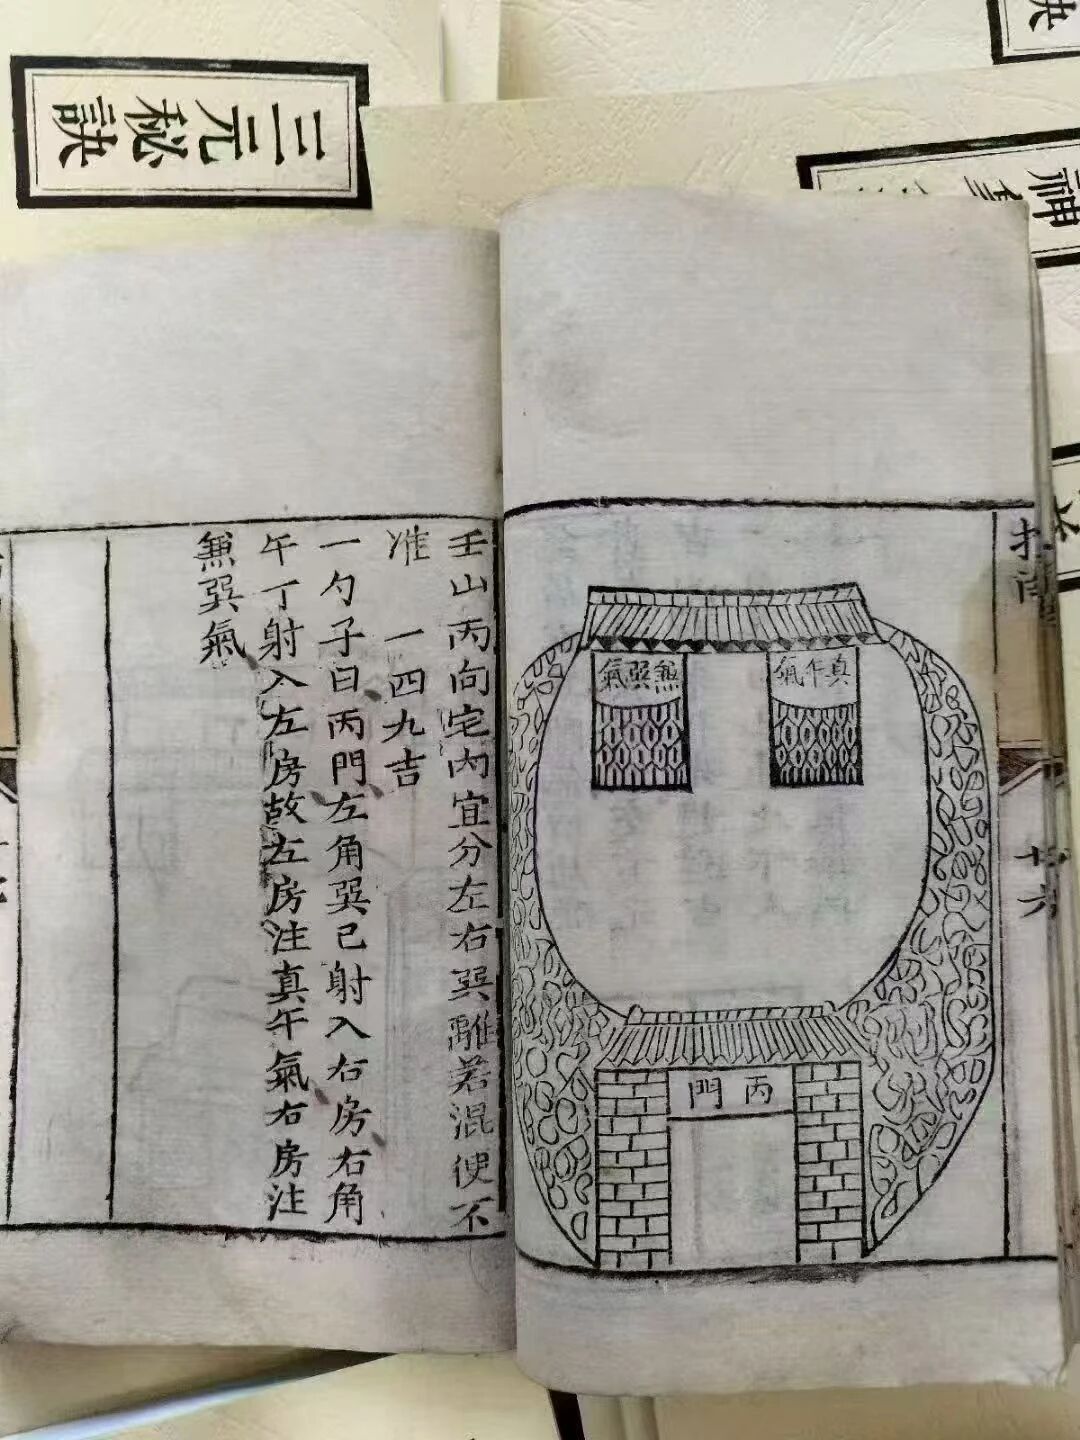 三元秘訣
訣
神
指南
廿六
真午氣
無巽氣
丙門
壬山丙向宅內宜分左右巽離若混便不
准　一四九吉
一勺子曰丙門左角巽巳射入右房右角
午丁射入左房故左房注真午氣右房注
無巽氣